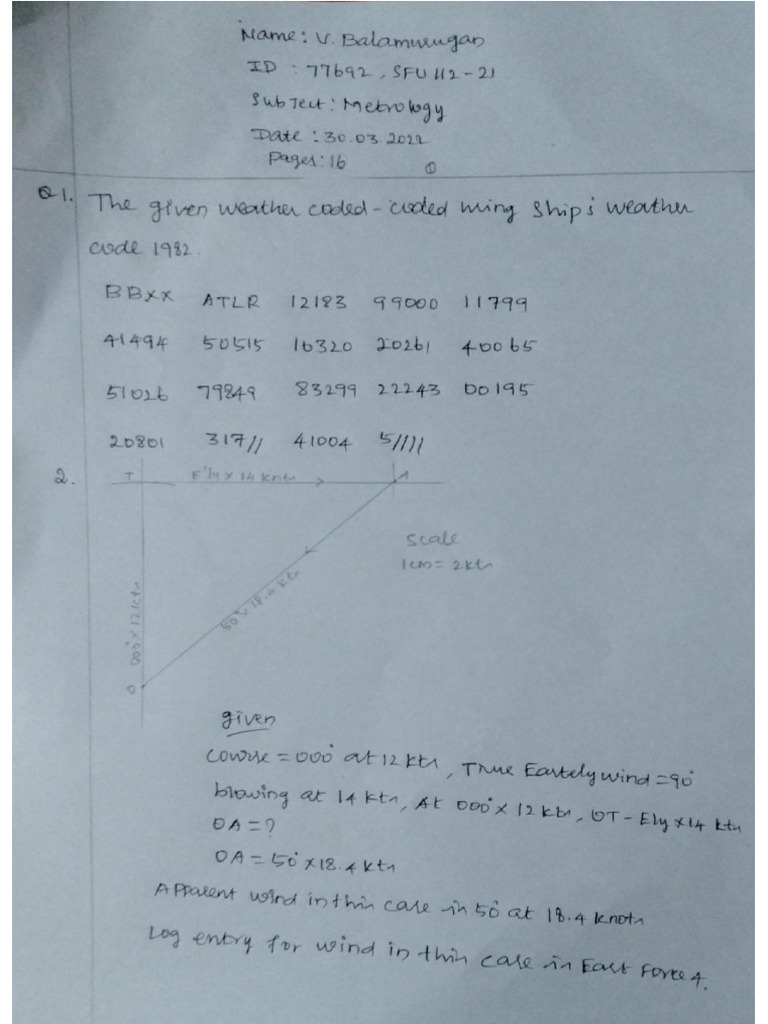 Name: V. Balamurugan
ID : 77692, SFU 112-21
SubJect: Metrology
Date : 30.03.2022
Pages: 16
①
Q1. The given weather coded-coded using Ship's weather
code 1982.
BBXX ATLR 12183 99000 11799
41494 50515 10320 20261 40065
51026 79849 83299 22243 00195
20801 317// 41004 5////
2.
T E'ly x 14 knts A
scale
1cm = 2kts
50° x 18.4 kts
000° x 12 kts
O
given
Course = 000° at 12 kts, True Eastely wind = 90°
blowing at 14 kts, At 000° x 12 kts, OT - Ely x 14 kts
OA = ?
OA = 50° x 18.4 kts
Apparent wind in this case is 50° at 18.4 knots
Log entry for wind in this case is East Force 4.